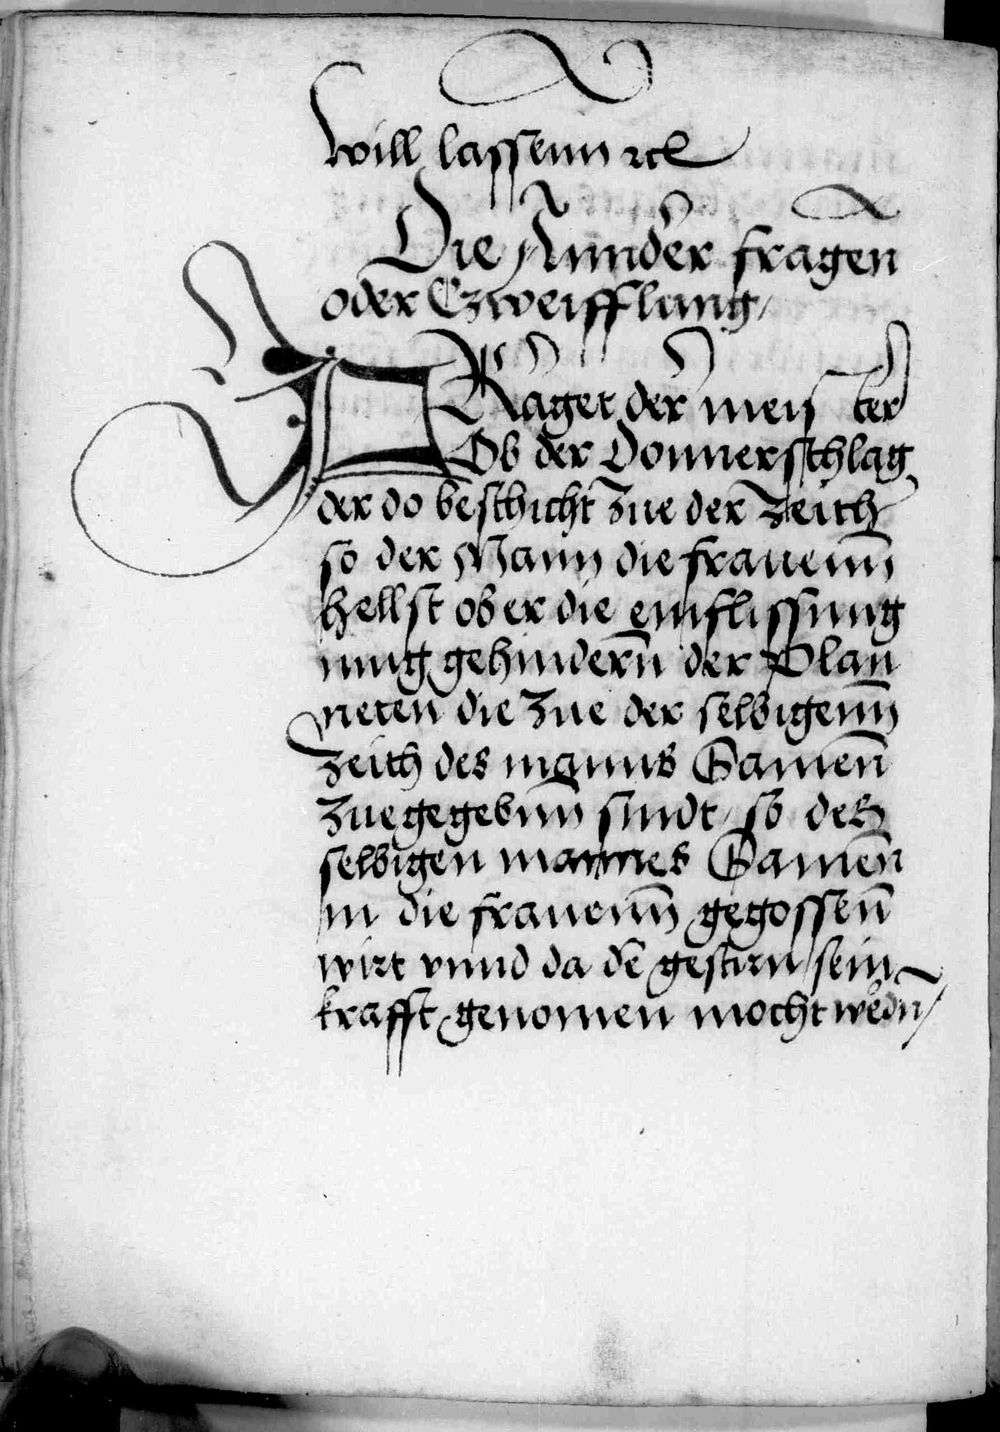 Will lassenn rc
Die Annder fragen
oder Czweifflung /
FRaget der meister
Ob der Donnerschlag
der do beschicht zue der zeith
so der Mann die frauenn̄
helst ob er die einflissung
nung gehindern̄ der Plan
neten die zue der selbigenn̄
zeith des manns Samen̄
zue gegebnn̄ sindt / so des
selbigen mannes Samen̄
in die frauenn̄ gegossen̄
wirt vnnd da dē gestirn sein
krafft genomen mocht werdn̄ /